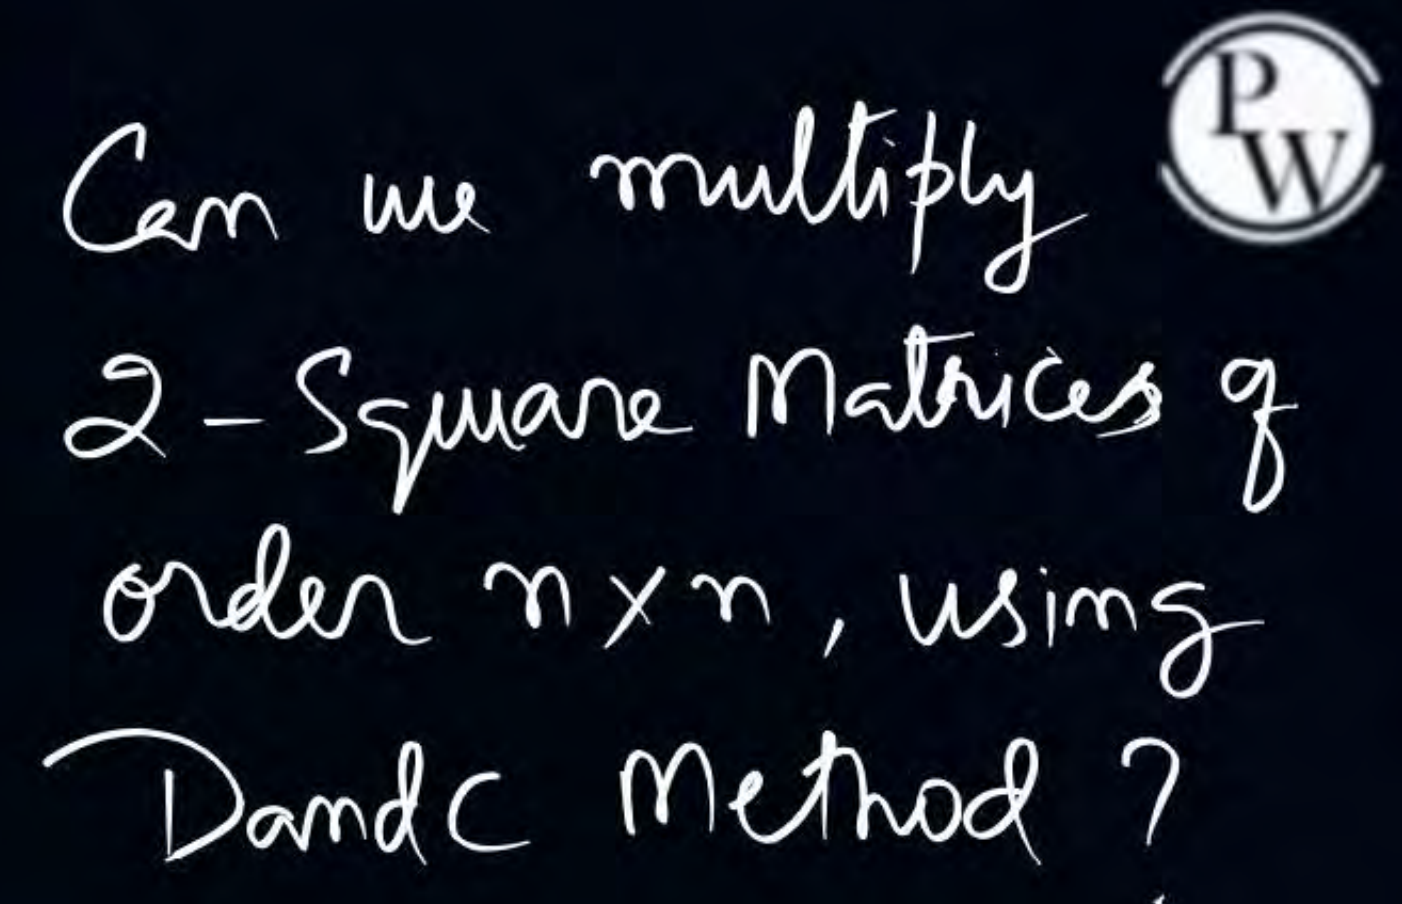 Can we multiply
PW
2-Square Matrices of
order n×n, using
DandC Method ?